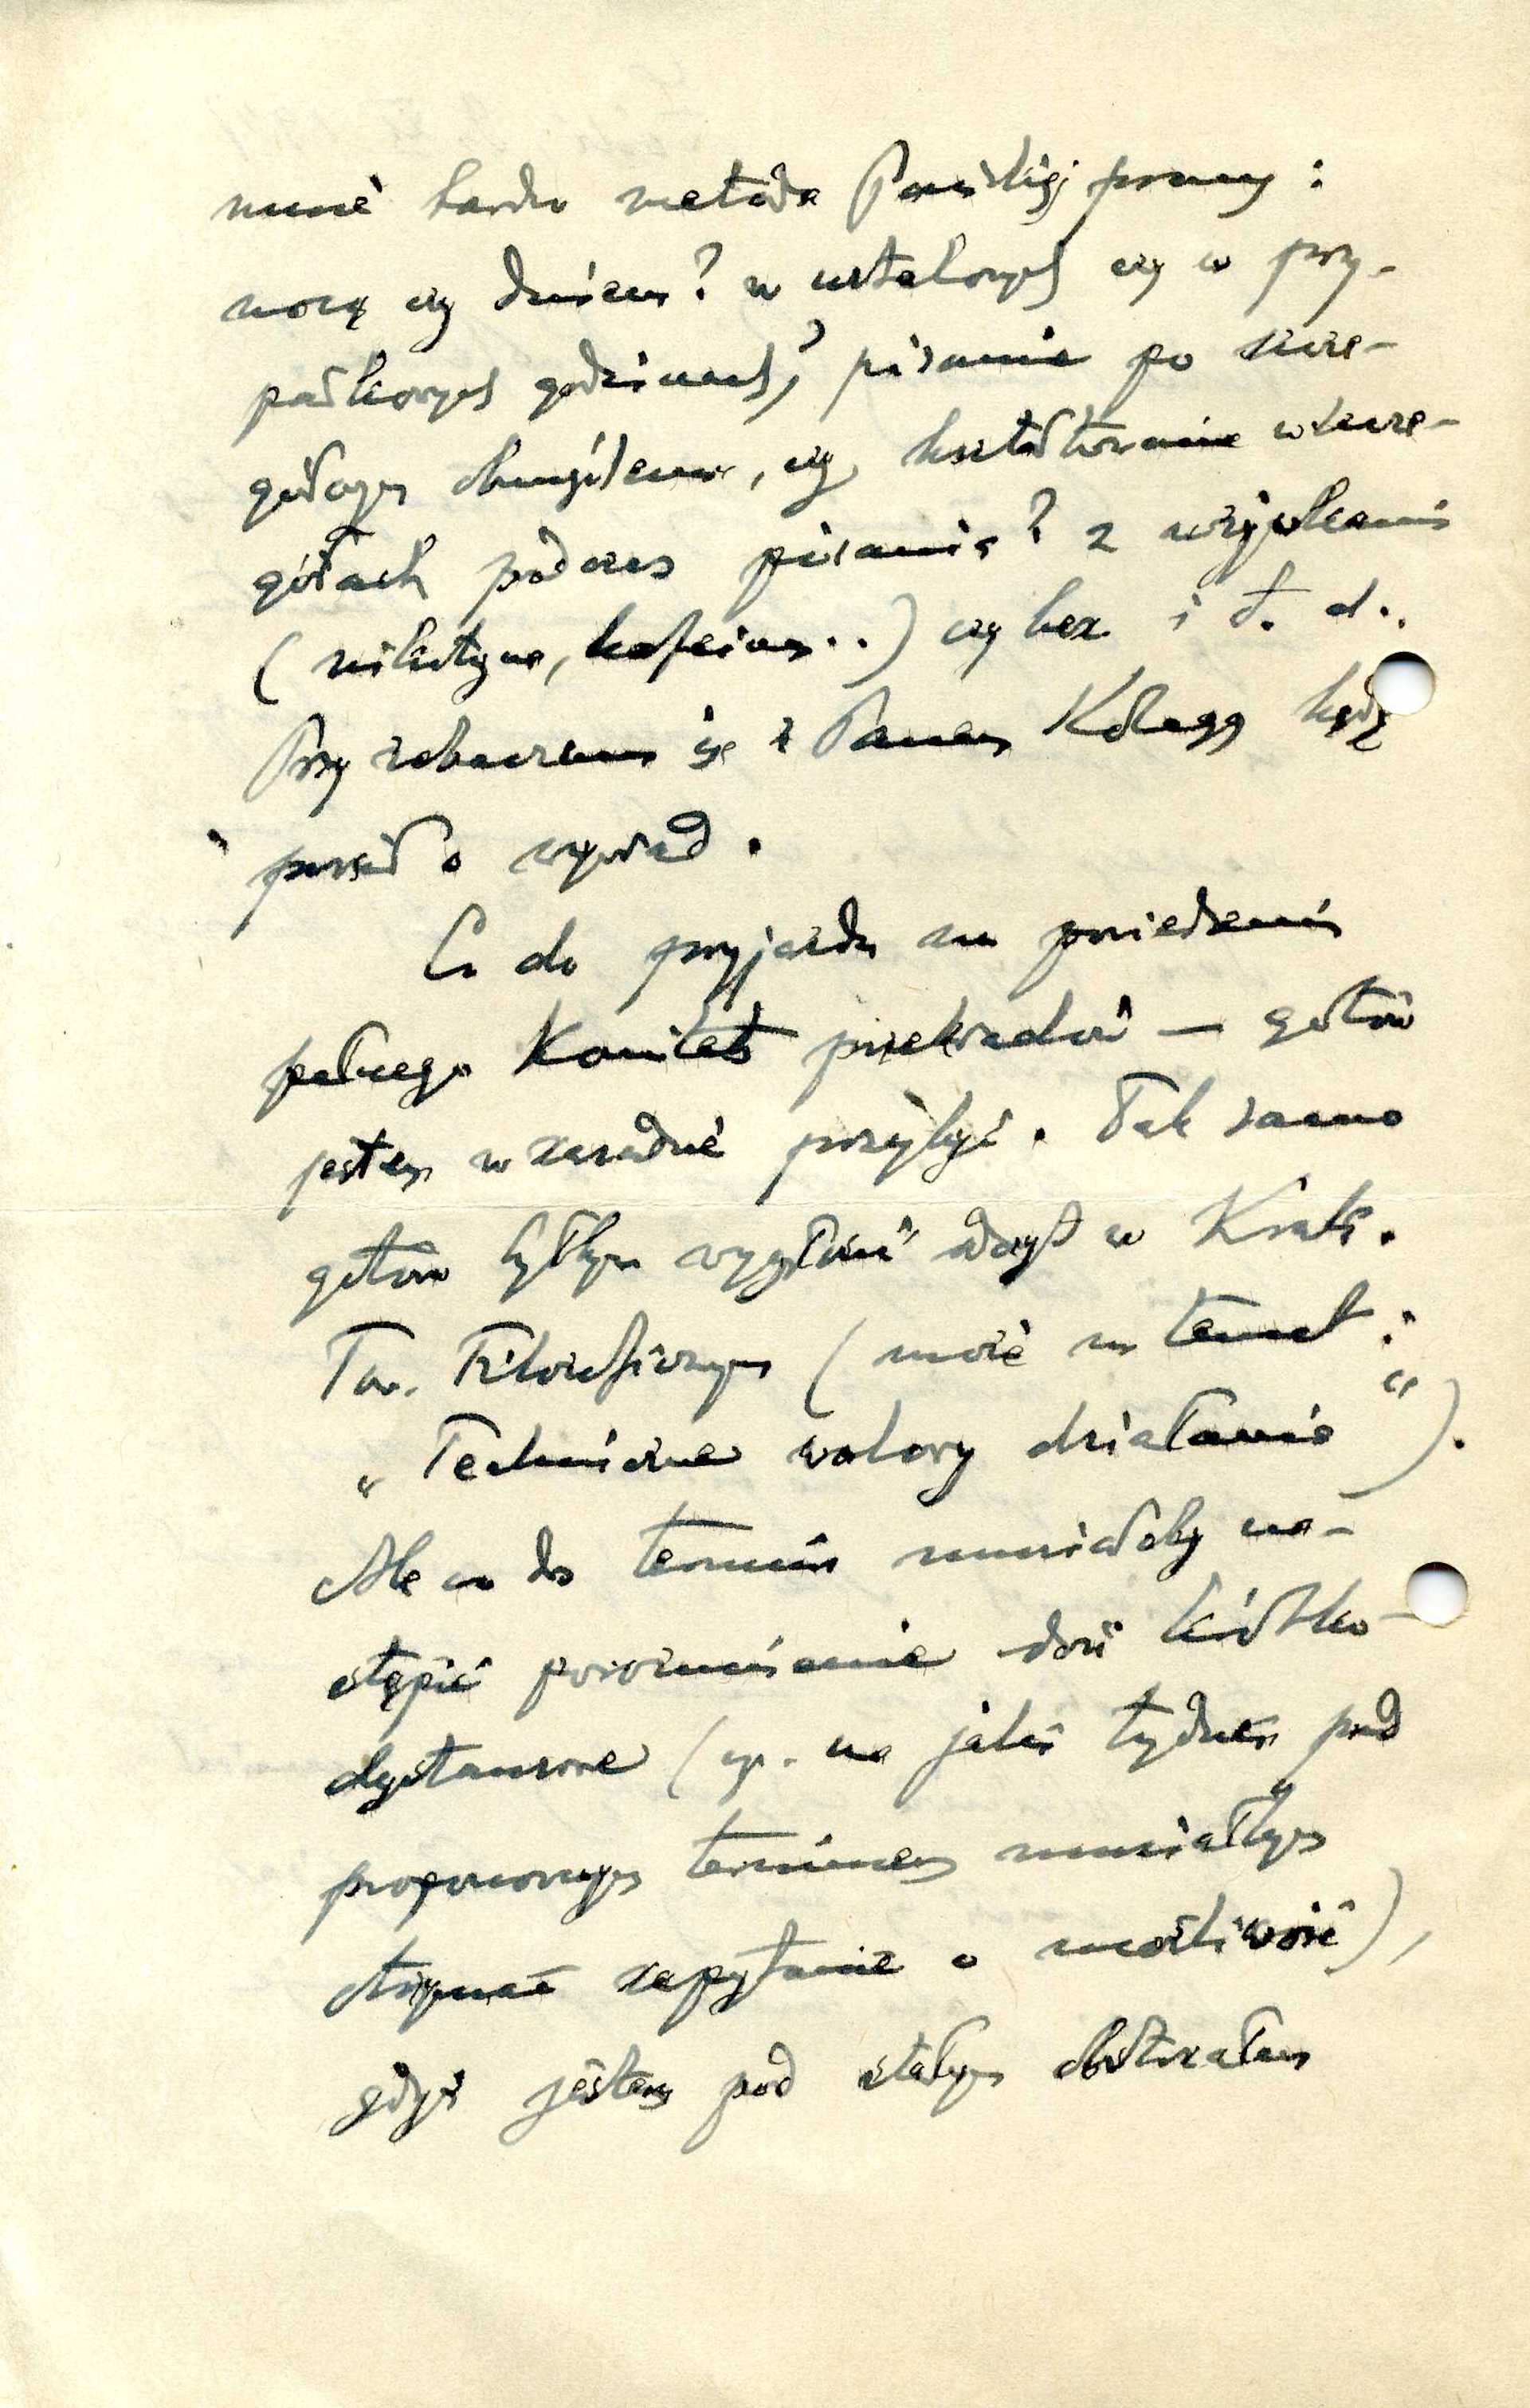 mnie bardzo metoda Pańskiej pracy:
nocą czy dniem? w ustalonych czy w przy-
padkowych godzinach? pisanie po szcze-
gółowym obmyśleniu, czy kształtowanie w szcze-
gółach podczas pisania? z używkami
(nikotyna, kofeina..) czy bez i t. d..
Przy zobaczeniu się z Panem Kolegą będę
prosił o wywiad.
Co do przyjazdu na posiedzenie
pełnego Komitetu przekładów — gotów
jestem w zasadzie przybyć. Tak samo
gotów byłbym wygłosić odczyt w Krak.
Tow. Filozoficznym (może na temat:
„Techniczne walory działania").
Ale co do terminu musiałoby na-
stąpić porozumienie dość krótko-
dystansowe (np. na jakiś tydzień przed
proponowanym terminem musiałbym
otrzymać zapytanie o możliwość),
gdyż jestem pod stałym obstrzałem